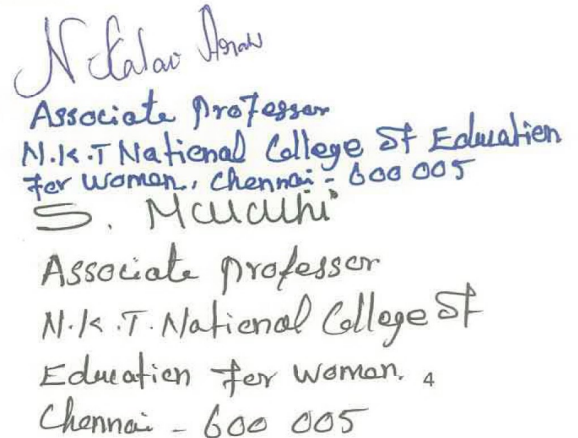 N Kalai
Associate Professor
N.K.T National College of Education
for Women, Chennai - 600 005
S.
Associate Professor
N.K.T. National College of
Education for Women. 4
Chennai - 600 005